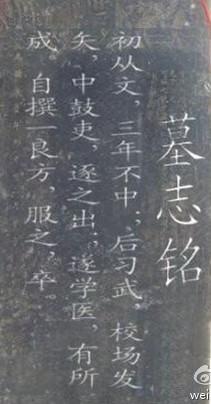 墓志铭
初从文，三年不中；后习武，校场发
矢，中鼓吏，逐之出；遂学医，有所
成。自撰一良方，服之，卒。
wei